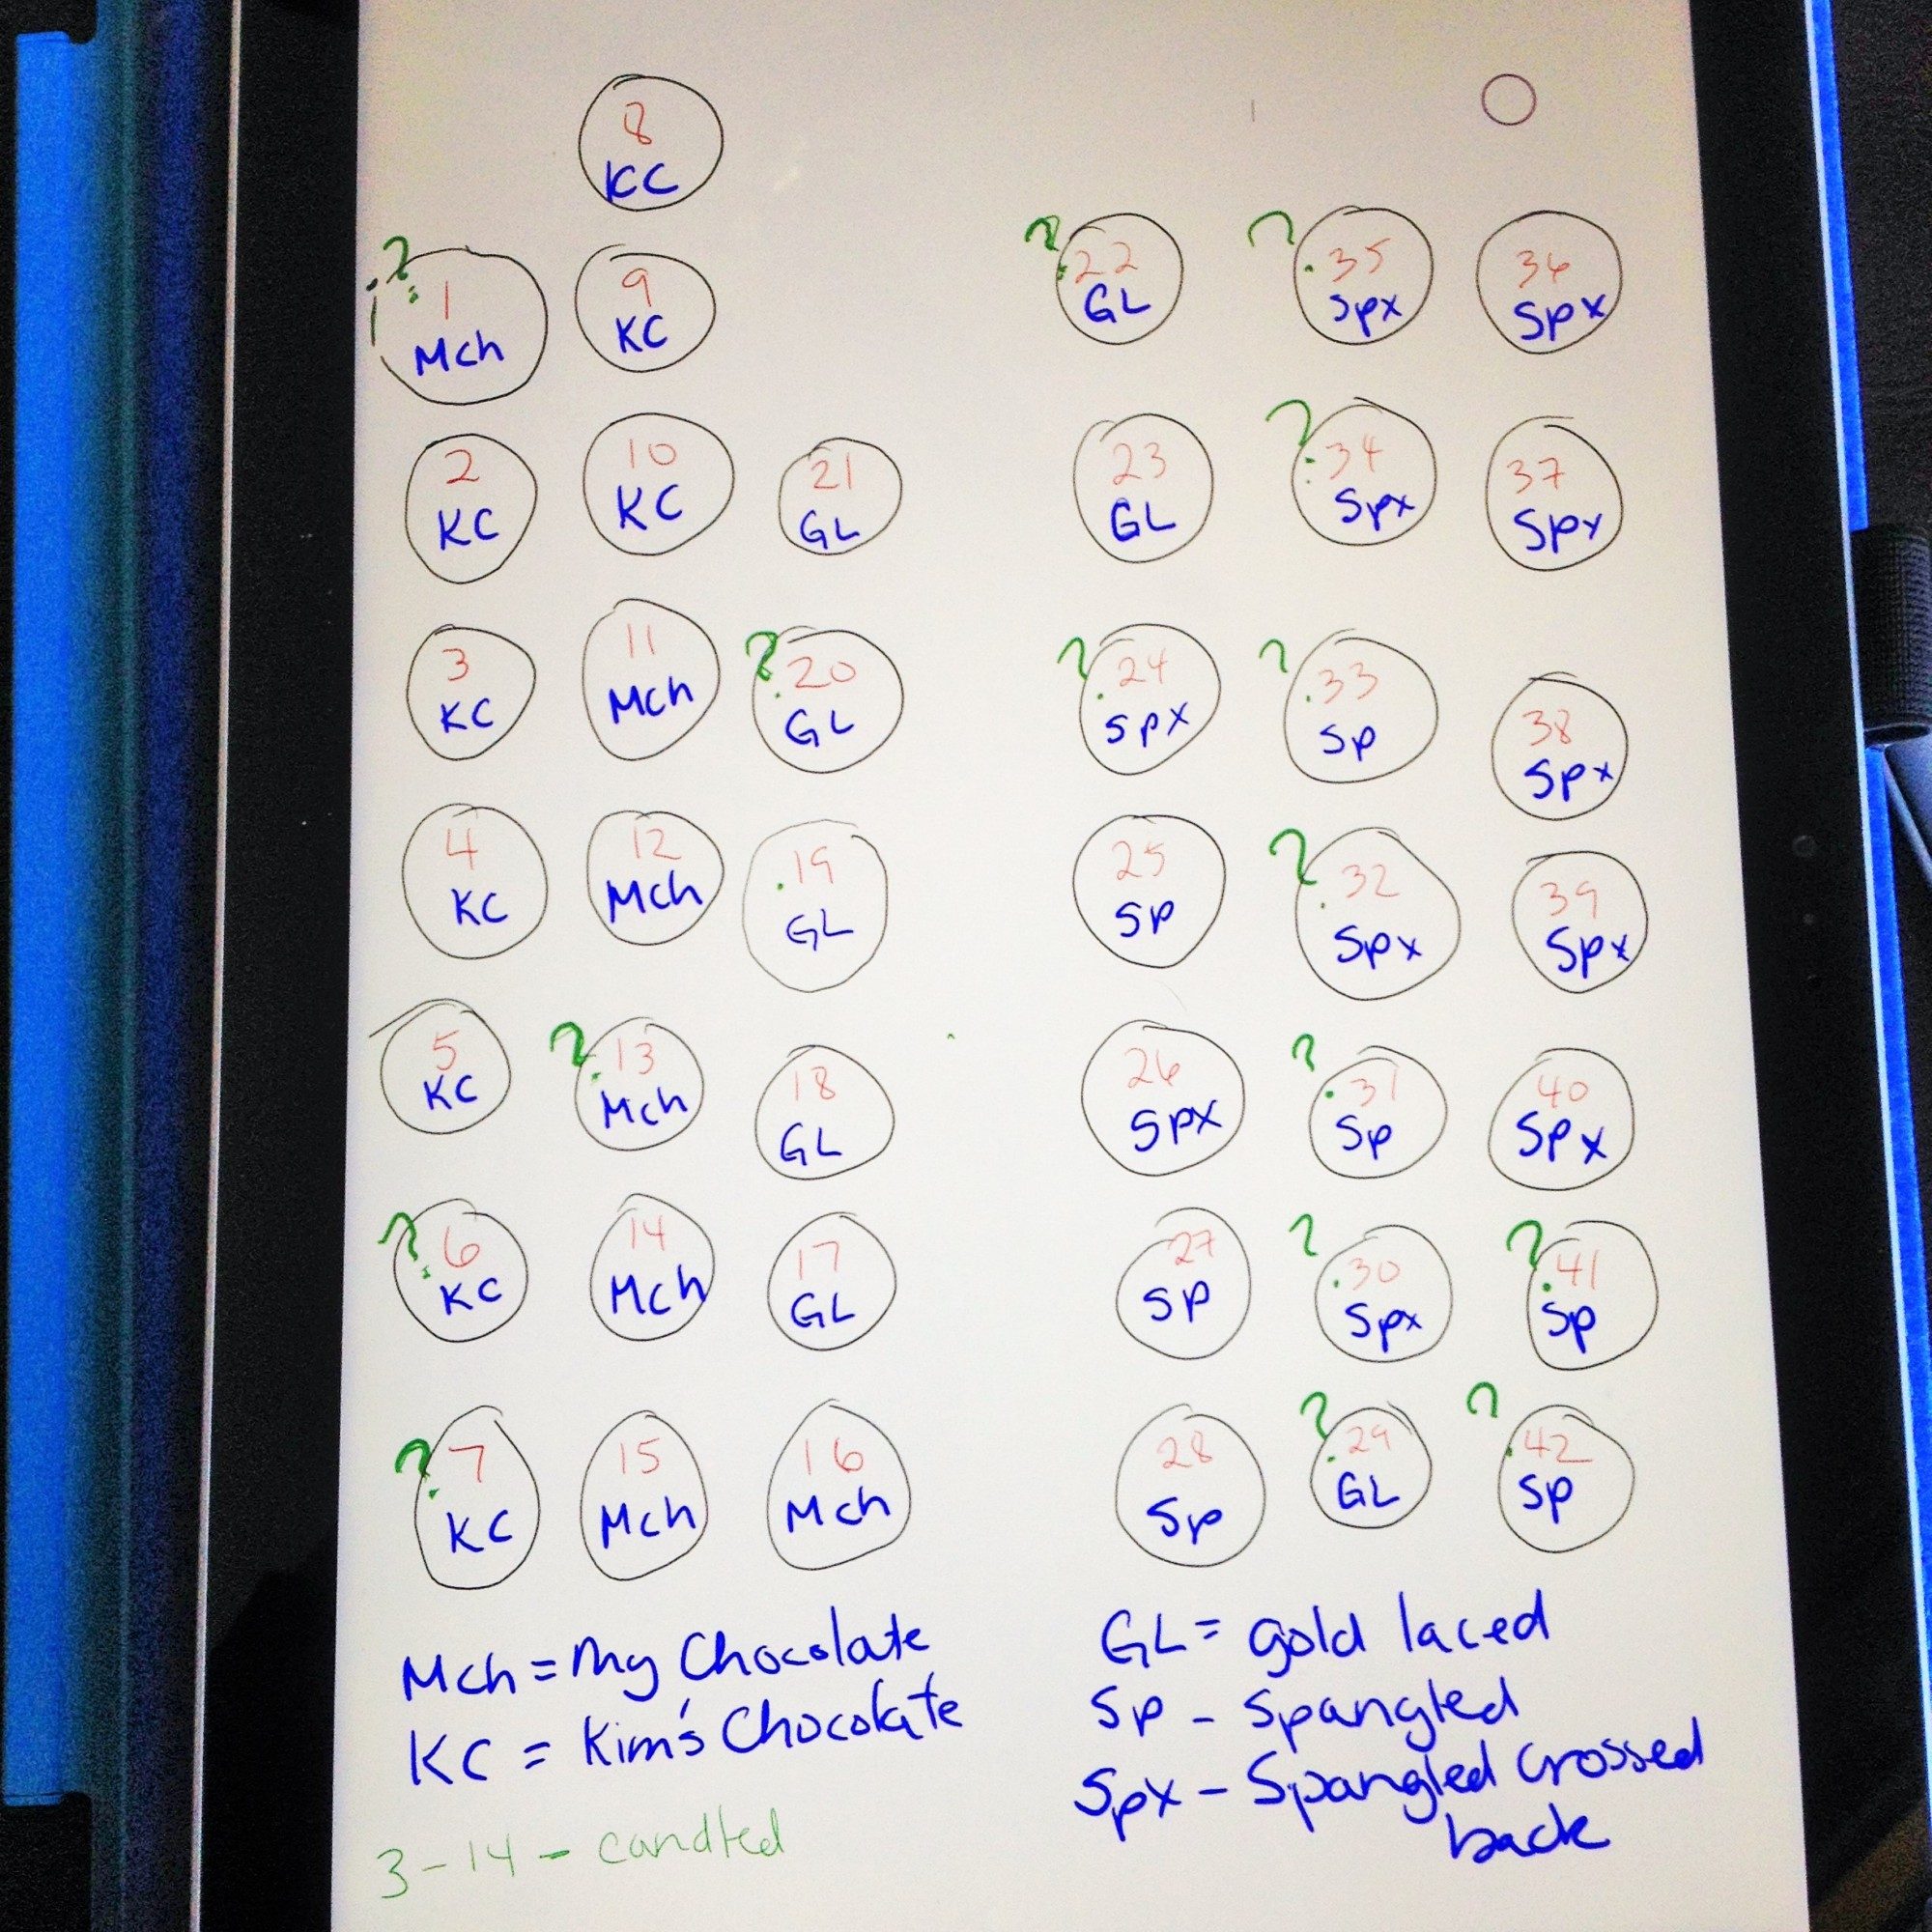 8
KC
?
1
Mch
9
KC
?
22
GL
?
35
Spx
36
Spx
2
KC
10
KC
21
GL
23
GL
?
34
Spx
37
Spx
3
KC
11
Mch
?
20
GL
?
24
Spx
?
33
Sp
38
Spx
4
KC
12
Mch
19
GL
25
SP
?
32
Spx
39
Spx
5
KC
?
13
Mch
18
GL
26
SPX
?
31
Sp
40
Spx
?
6
KC
14
Mch
17
GL
27
SP
?
30
Spx
?
41
Sp
?
7
KC
15
Mch
16
Mch
28
Sp
?
29
GL
?
42
Sp
Mch = My Chocolate
KC = Kim's Chocolate
3-14 - candled
GL = gold laced
Sp - Spangled
Spx - Spangled crossed
back